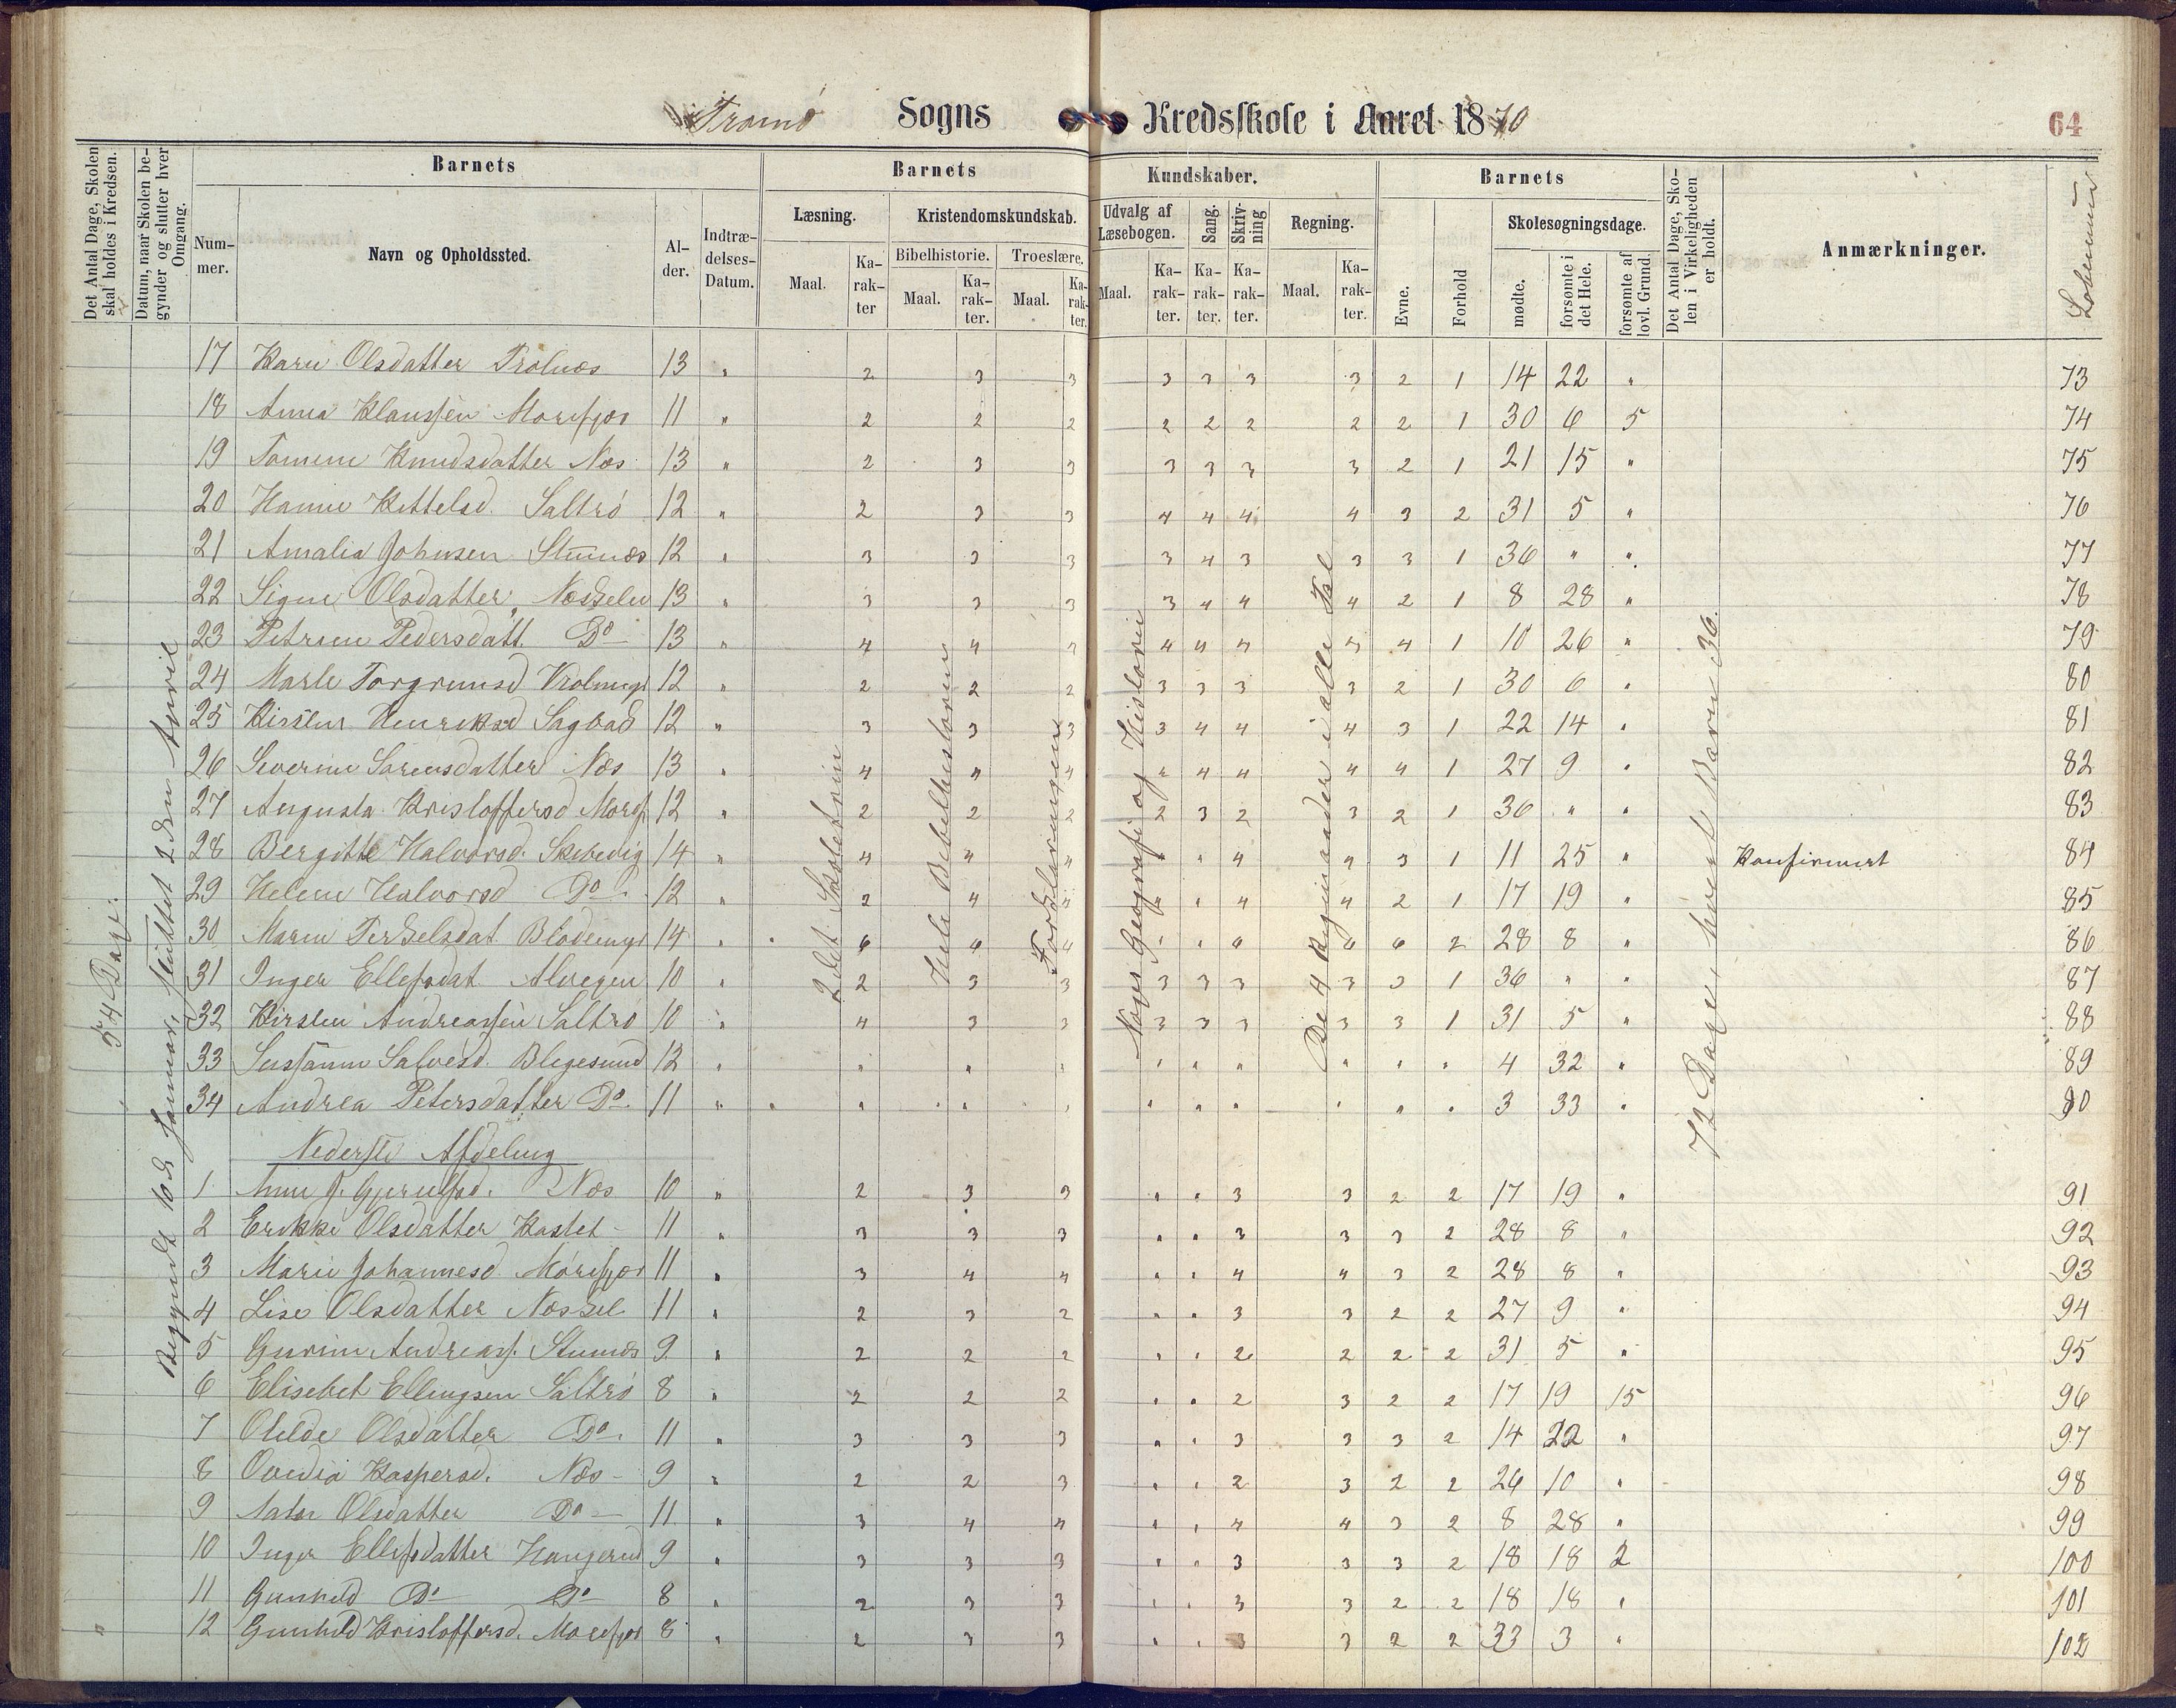 Tromø Sogns Kredsskole i Aaret 1870
64
Det Antal Dage, Skolen skal holdes i Kredsen.
Datum, naar Skolen begynder og slutter hver Omgang.
Barnets
Nummer.
Navn og Opholdssted.
Alder.
Indtrædelses-Datum.
Barnets Kundskaber.
Læsning.
Maal.
Karakter
Kristendomskundskab.
Bibelhistorie.
Maal.
Karakter.
Troeslære.
Maal.
Karakter.
Udvalg af Læsebogen.
Maal.
Karakter.
Sang.
Karakter.
Skrivning
Karakter.
Regning.
Maal.
Karakter.
Barnets
Evne.
Forhold
Skolesøgningsdage.
mødte.
forsømte i det Hele.
forsømte af lovl. Grund.
Det Antal Dage, Skolen i Virkeligheden er holdt.
Anmærkninger.
Løbenum
54 Dage.
Begyndt 10de Januar, sluttet 2den April
2det Skoletrin
Hele Bibelhistorien
Forklaringen
Norges Geografi og Historie
De 4 Regningsarter i alle Tal
72 Dage, hvert Barn 36.
17 Karen Olsdatter 13 " 2 3 3 3 3 3 3 2 1 14 22 " 73
18 Anna Klaussen Morefjær 11 " 2 2 2 2 2 2 2 2 1 30 6 5 74
19 Tomine Knudsdatter Næs 13 " 2 3 3 3 3 3 3 2 1 21 15 " 75
20 Hanne Kittelsd. Saltrø 12 " 2 3 3 4 4 4 4 3 2 31 5 " 76
21 Amalia Johnsen Stuenæs 12 " 3 3 3 3 4 3 3 3 1 36 " " 77
22 Signe Olsdatter Næskelen 13 " 3 3 3 3 4 4 4 2 1 8 28 " 78
23 Petrine Pedersdatt. Do 13 " 4 4 4 4 4 4 4 1 10 26 " 79
24 Marte Torgrimsd 12 " 2 2 2 3 3 3 3 2 1 30 6 " 80
25 Kirsten Henriksd Sagbad 12 " 3 3 3 3 4 4 4 3 1 22 14 " 81
26 Severine Sørensdatter Næs 13 " 4 4 4 4 4 4 4 1 27 9 " 82
27 Augusta Kristoffersd Moref 12 " 2 2 2 2 3 2 3 2 1 36 " " 83
28 Bergitte Halvorsd. Skibevig 14 " 4 4 4 " " 4 4 3 1 11 25 " Konfirmert 84
29 Helene Halvorsd Do 12 " 2 4 4 " " 4 4 2 1 17 19 " 85
30 Maren Terkelsdat Blødemyr 14 " 6 4 4 " " 6 6 6 2 28 8 " 86
31 Inger Ellefsdat Alvegen 10 " 2 3 3 3 3 3 3 3 1 36 " " 87
32 Kirsten Andreassen Saltrø 10 " 4 3 3 3 3 3 3 3 1 31 5 " 88
33 Susanne Salvesd. Blegesund 12 " " " " " " " " " " 4 32 " 89
34 Andrea Petersdatter Do 11 " " " " " " " " " " 3 33 " 90
Nederste Afdeling
1 Anne J. Næs 10 " 2 3 3 " " 3 3 2 2 17 19 " 91
2 Erikke Olsdatter Kastet 11 " 3 3 3 " " 3 3 3 2 28 8 " 92
3 Marie Johannesd Morefjær 11 " 3 4 4 " " 4 4 3 2 28 8 " 93
4 Lise Olsdatter Næskel 11 " 2 3 2 " " 3 3 2 2 27 9 " 94
5 Gurine Andreass. Stuenæs 9 " 2 2 2 " " 2 2 2 2 31 5 " 95
6 Elisebet Ellingsen Saltrø 8 " 2 2 2 " " 2 3 2 2 17 19 15 96
7 Otilde Olsdatter Do 11 " 3 3 3 " " 3 3 3 2 14 22 " 97
8 Ovedia Kaspersd. Næs 9 " 2 2 3 " " 2 3 2 2 26 10 " 98
9 Olsdatter Do 11 " 3 4 4 " " 4 4 3 2 8 28 " 99
10 Inger Ellefsdatter Haugerud 9 " 3 3 3 " " 3 3 3 2 18 18 2 100
11 Gunhild Do Do 8 " 2 3 3 " " 3 3 2 2 18 18 " 101
12 Gunhild Kristoffersd. Morefjær 8 " 2 3 3 " " 3 3 2 2 33 3 " 102